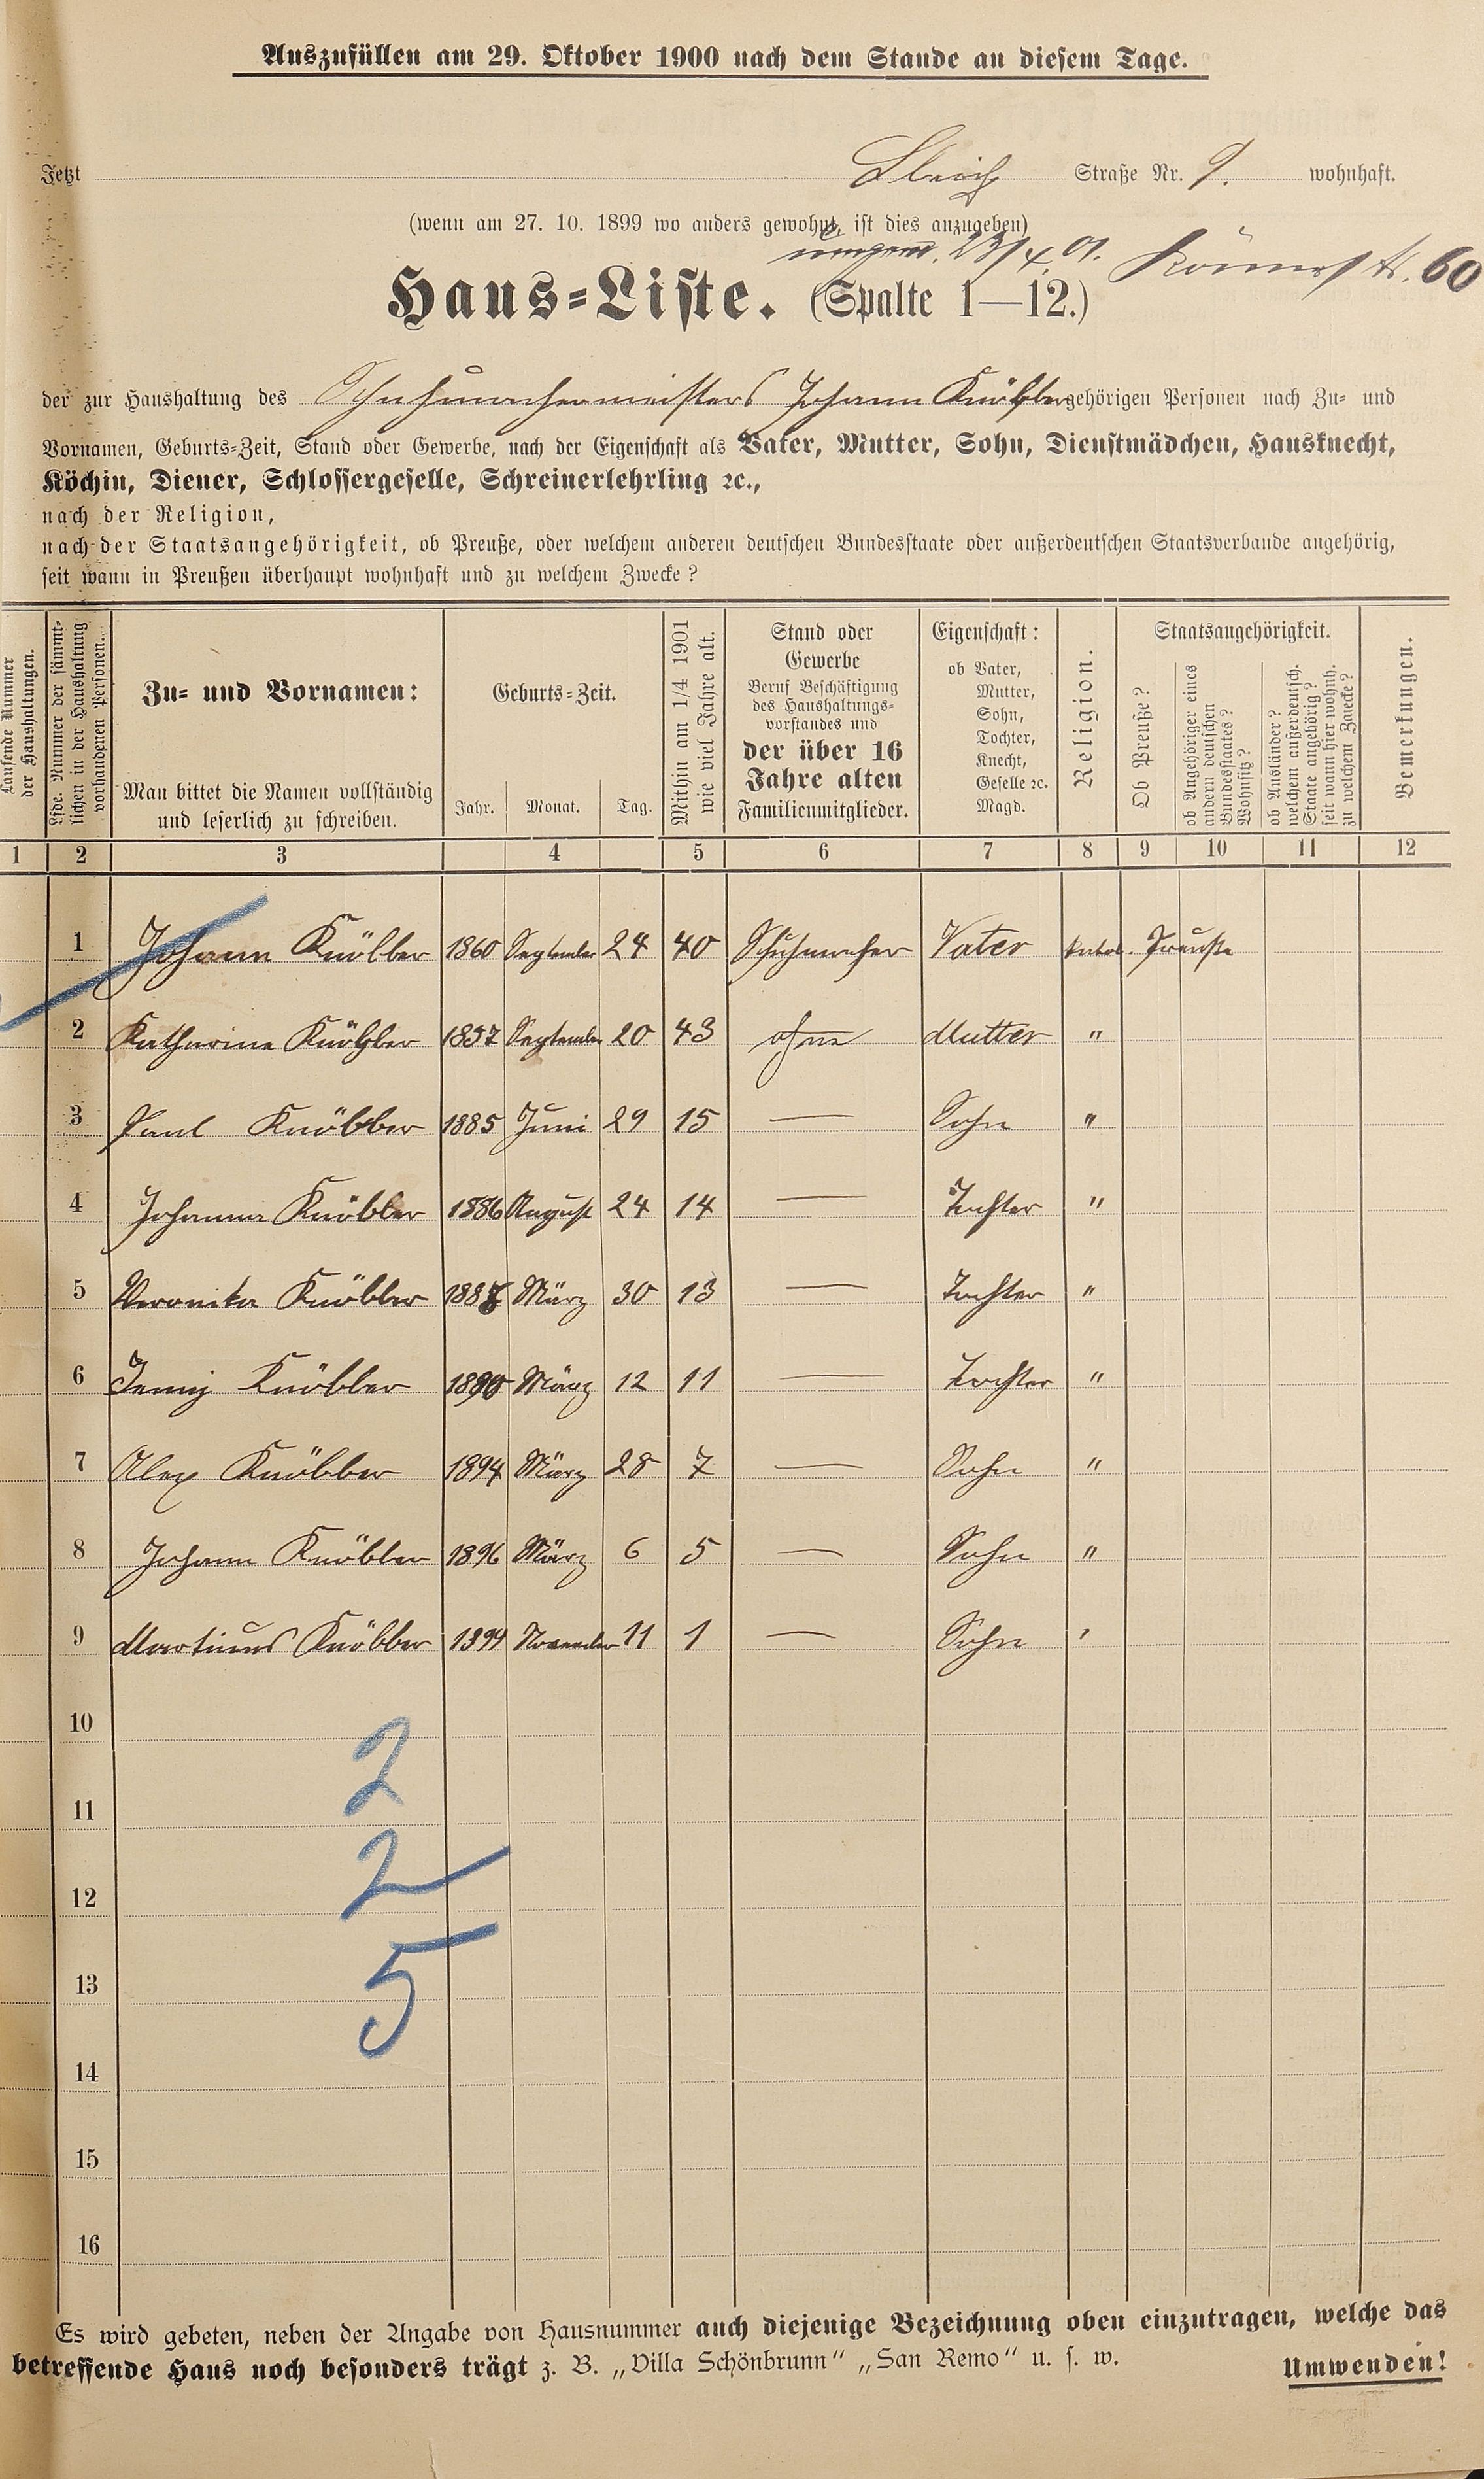 Auszufüllen am 29. Oktober 1900 nach dem Stande an diesem Tage.
Jetzt Bleich Straße Nr. 9. wohnhaft.
(wenn am 27. 10. 1899 wo anders gewohnt, ist dies anzugeben)
23/4.01. Römerstr. 60
Haus-Liste. (Spalte 1—12.)
der zur Haushaltung des Schuhmachermeisters Johann Knöbber gehörigen Personen nach Zu- und
Vornamen, Geburts-Zeit, Stand oder Gewerbe, nach der Eigenschaft als Vater, Mutter, Sohn, Dienstmädchen, Hausknecht,
Köchin, Diener, Schlossergeselle, Schreinerlehrling ꝛc.,
nach der Religion,
nach der Staatsangehörigkeit, ob Preuße, oder welchem anderen deutschen Bundesstaate oder außerdeutschen Staatsverbande angehörig,
seit wann in Preußen überhaupt wohnhaft und zu welchem Zwecke?
Laufende Nummer
der Haushaltungen.
Lfde. Nummer der sämmt-
lichen in der Haushaltung
vorhandenen Personen.
Zu- und Vornamen:
Man bittet die Namen vollständig
und leserlich zu schreiben.
Geburts-Zeit.
Jahr. Monat. Tag.
Mithin am 1/4 1901
wie viel Jahre alt.
Stand oder
Gewerbe
Beruf Beschäftigung
des Haushaltungs-
vorstandes und
der über 16
Jahre alten
Familienmitglieder.
Eigenschaft:
ob Vater,
Mutter,
Sohn,
Tochter,
Knecht,
Geselle ꝛc.
Magd.
Religion.
Staatsangehörigkeit.
Ob Preuße?
ob Angehöriger eines
andern deutschen
Bundesstaates?
Wohnsitz?
ob Ausländer?
welchem außerdeutsch.
Staate angehörig?
seit wann hier wohnh.
zu welchem Zwecke?
Bemerkungen.
1 2 3 4 5 6 7 8 9 10 11 12
1 Johann Knöbber 1860 September 24 40 Schuhmacher Vater kathol. Preuße
2 Katharina Knöbber 1857 September 20 43 ohne Mutter "
3 Paul Knöbber 1885 Juni 29 15 — Sohn "
4 Johanna Knöbber 1886 August 24 14 — Tochter "
5 Veronika Knöbber 1888 März 30 13 — Tochter "
6 Jenny Knöbber 1890 März 12 11 — Tochter "
7 Alex Knöbber 1894 März 28 7 — Sohn "
8 Johann Knöbber 1896 März 6 5 — Sohn "
9 Martinus Knöbber 1899 November 11 1 — Sohn "
10
2
11
2
12
5
13
14
15
16
Es wird gebeten, neben der Angabe von Hausnummer auch diejenige Bezeichnung oben einzutragen, welche das
betreffende Haus noch besonders trägt z. B. „Villa Schönbrunn" „San Remo" u. s. w. Umwenden!